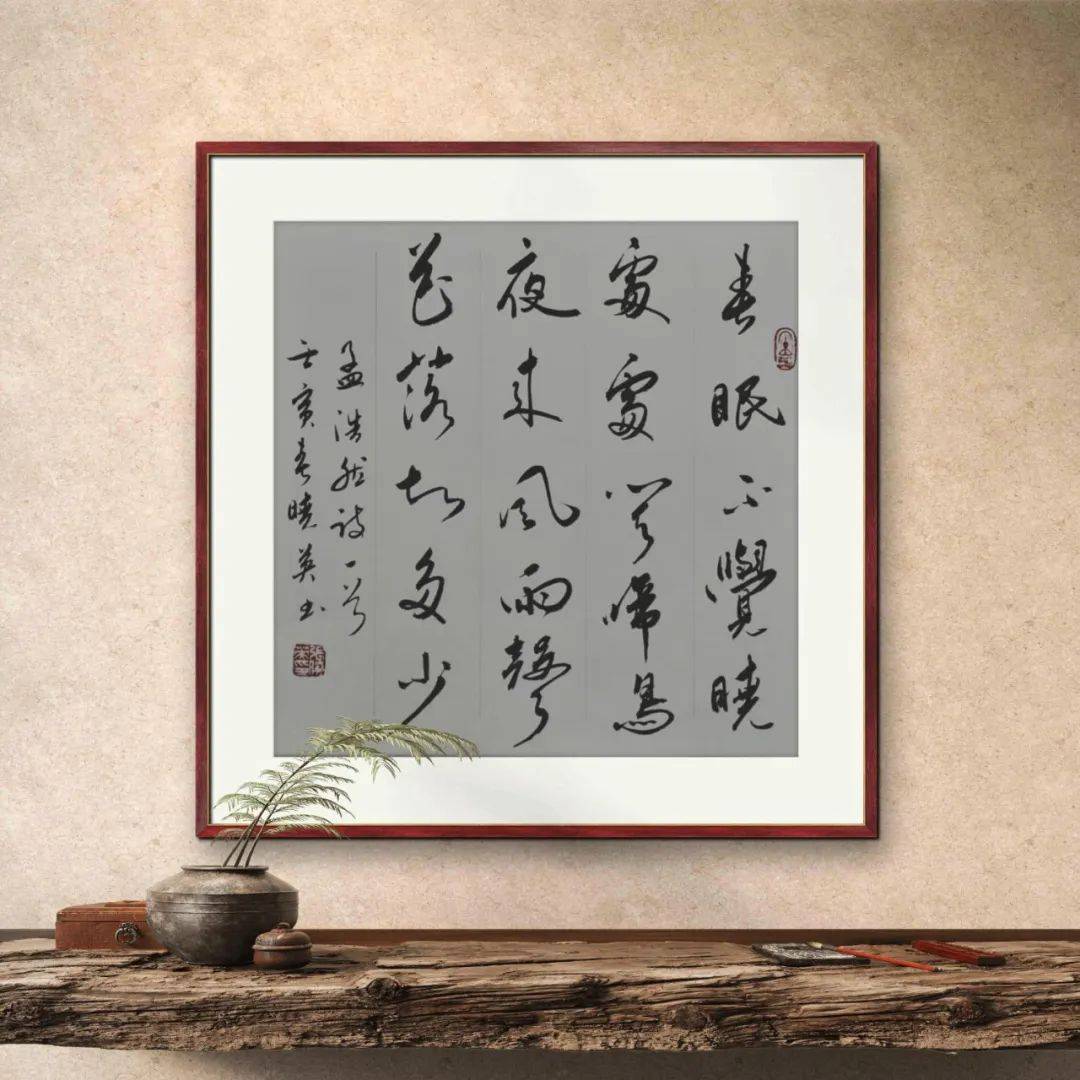 春眠不覺曉
處處聞啼鳥
夜來風雨聲
花落知多少
孟浩然詩一首
壬寅春曉英書